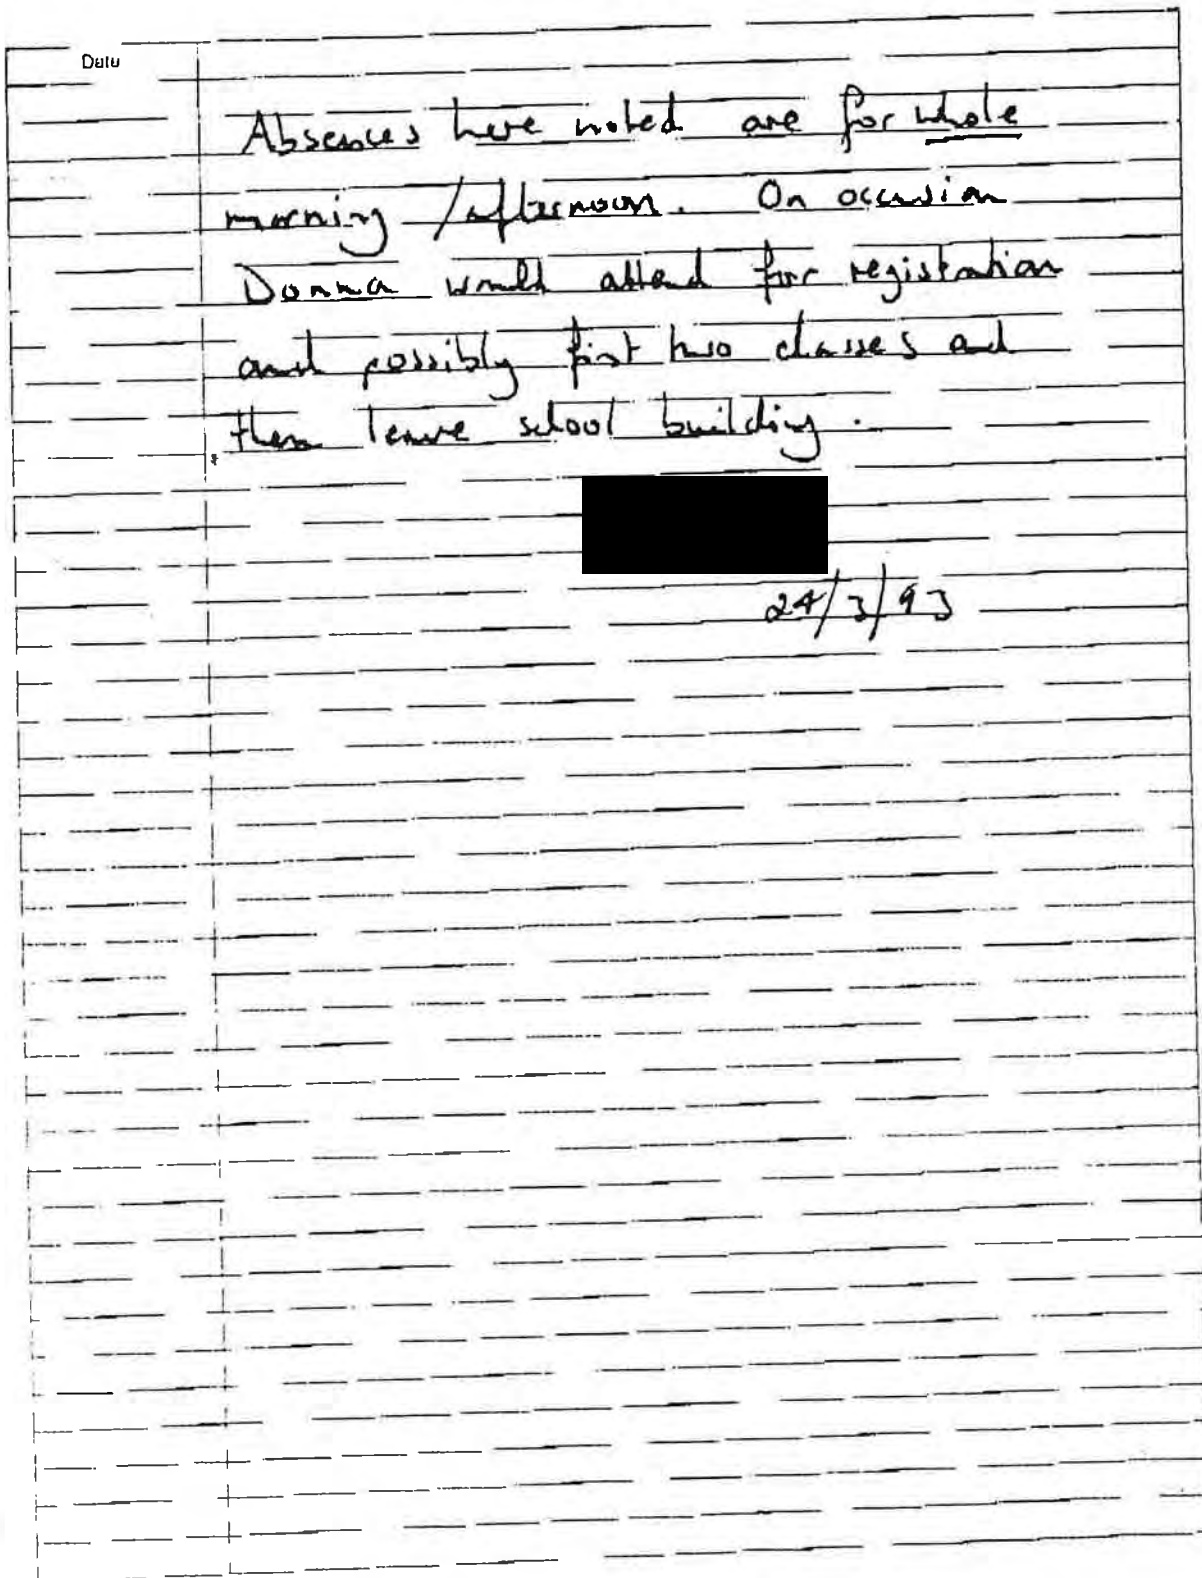 Date
Absences here noted are for whole
morning / afternoon. On occasion
Donna would attend for registration
and possibly first two classes and
then leave school building.
24/3/93